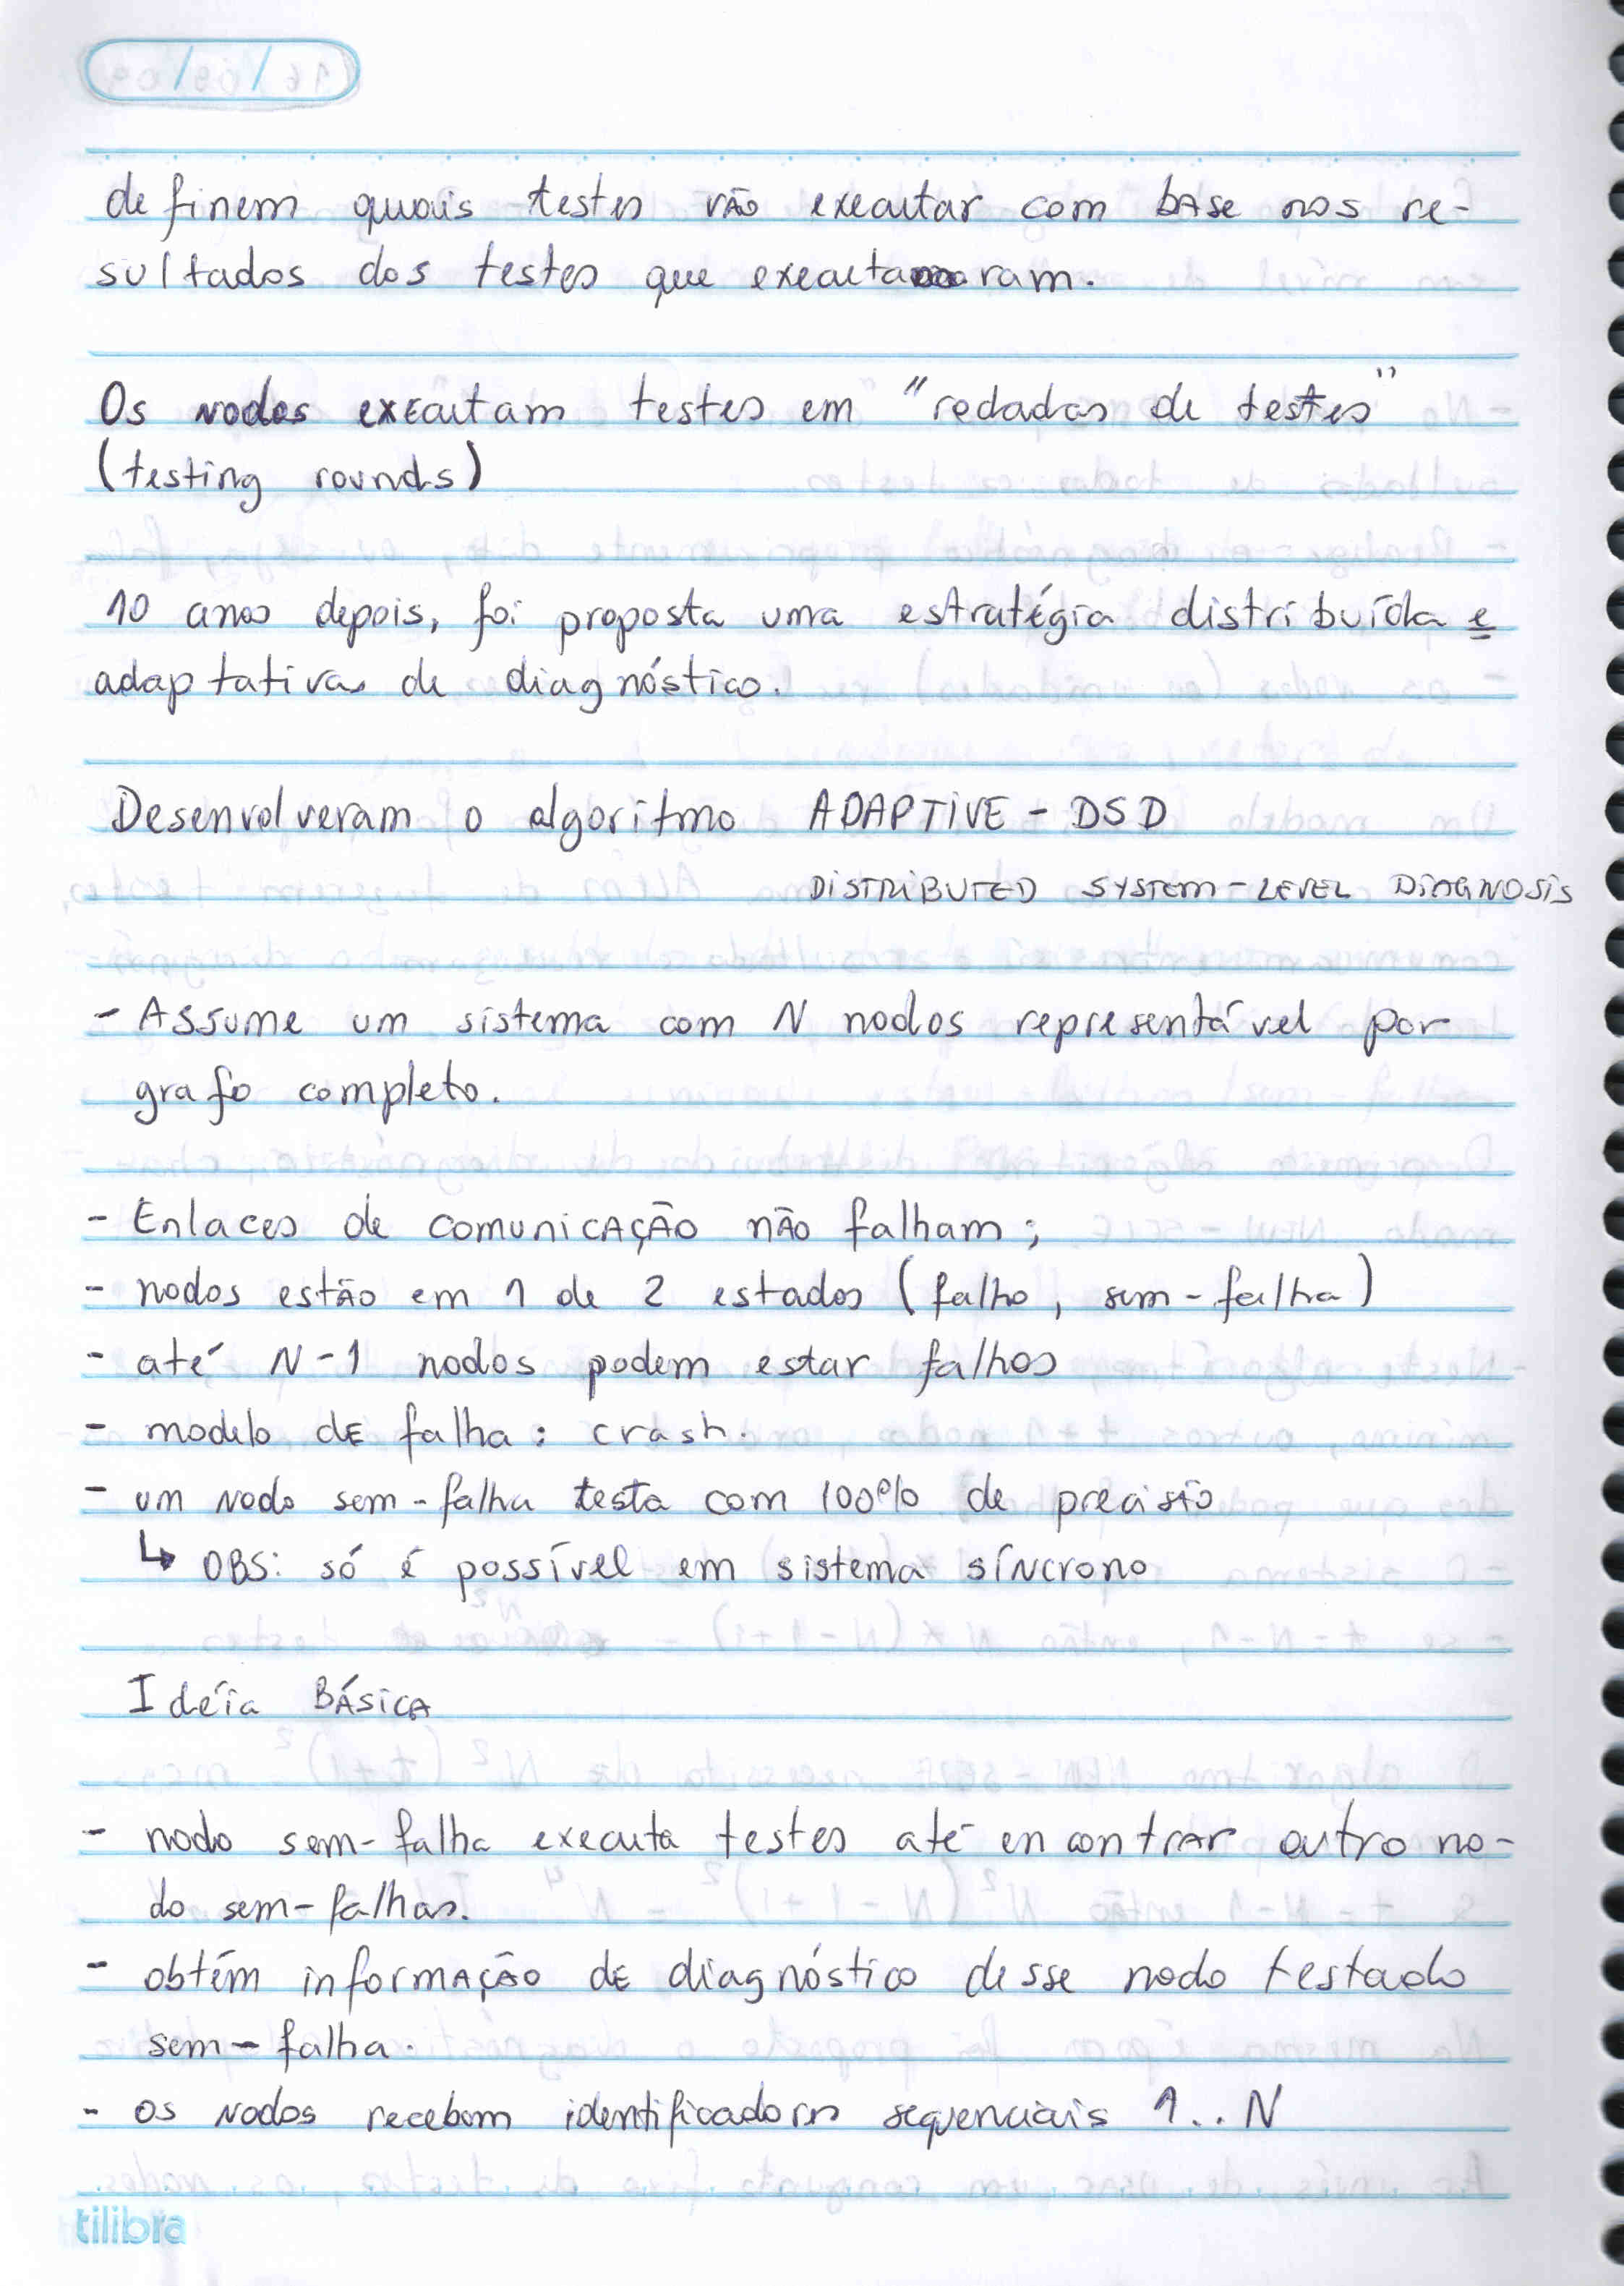 definem quais testes vão executar com base nos re-
sultados dos testes que executaram.
Os nodos executam testes em "rodadas de testes"
(testing rounds)
10 anos depois, foi proposta uma estratégia distribuída e
adaptativa de diagnóstico.
Desenvolveram o algoritmo ADAPTIVE - DSD
DISTRIBUTED SYSTEM-LEVEL DIAGNOSIS
- Assume um sistema com N nodos representável por
grafo completo.
- Enlaces de comunicação não falham;
- nodos estão em 1 de 2 estados (falho, sem-falha)
- até N-1 nodos podem estar falhos
- modelo de falha: crash.
- um nodo sem-falha testa com 100% de precisão
↳ OBS: só é possível em sistema síncrono
Idéia Básica
- nodo sem-falha executa testes até encontrar outro no-
do sem-falhas.
- obtém informação de diagnóstico desse nodo testado
sem-falha.
- os nodos recebem identificadores sequenciais 1..N
tilibra